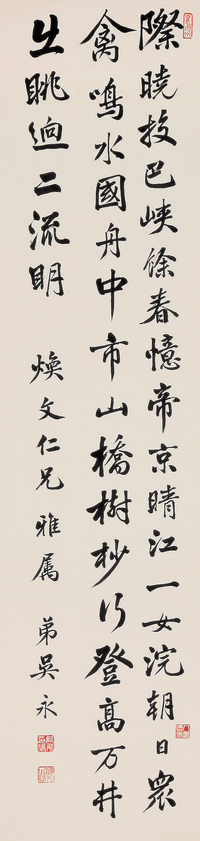 際曉投巴峽餘春憶帝京晴江一女浣朝日眾
禽鳴水國舟中市山橋樹杪行登高万井
出眺逈二流明
煥文仁兄雅屬 弟吳永